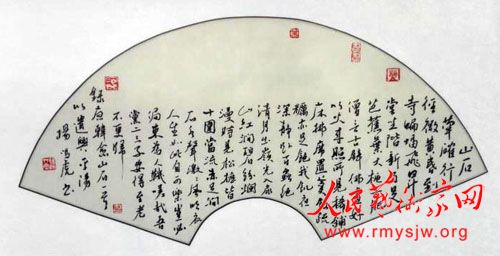 山石
犖确行
徑微黄昏到
寺蝙蝠飛升
堂坐階新雨足
芭蕉葉大梔子肥
僧言古壁佛畫好
以火來照所見稀鋪
床拂席置羹飯疏
糲亦足飽我飢夜
深靜卧百蟲絕
清月出嶺光入扉
山紅澗碧紛爛
漫時見松櫪皆
十圍當流赤足蹋澗
石水聲激激風吹衣
人生如此自可樂豈必
局束為人鞿嗟哉吾
黨二三子安得至老
不更歸
錄唐韓愈山石一首
以遣興
楊虎书
人民藝術家网
www.rmysjw.org